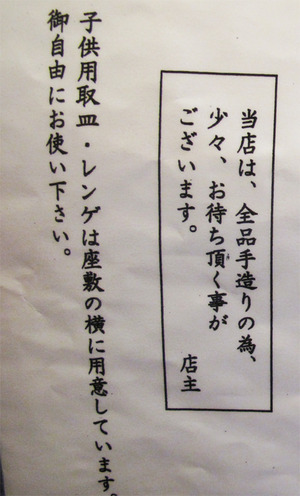 当店は、全品手造りの為、
少々、お待ち頂く事が
ございます。
店主
子供用取皿・レンゲは座敷の横に用意しています。
御自由にお使い下さい。